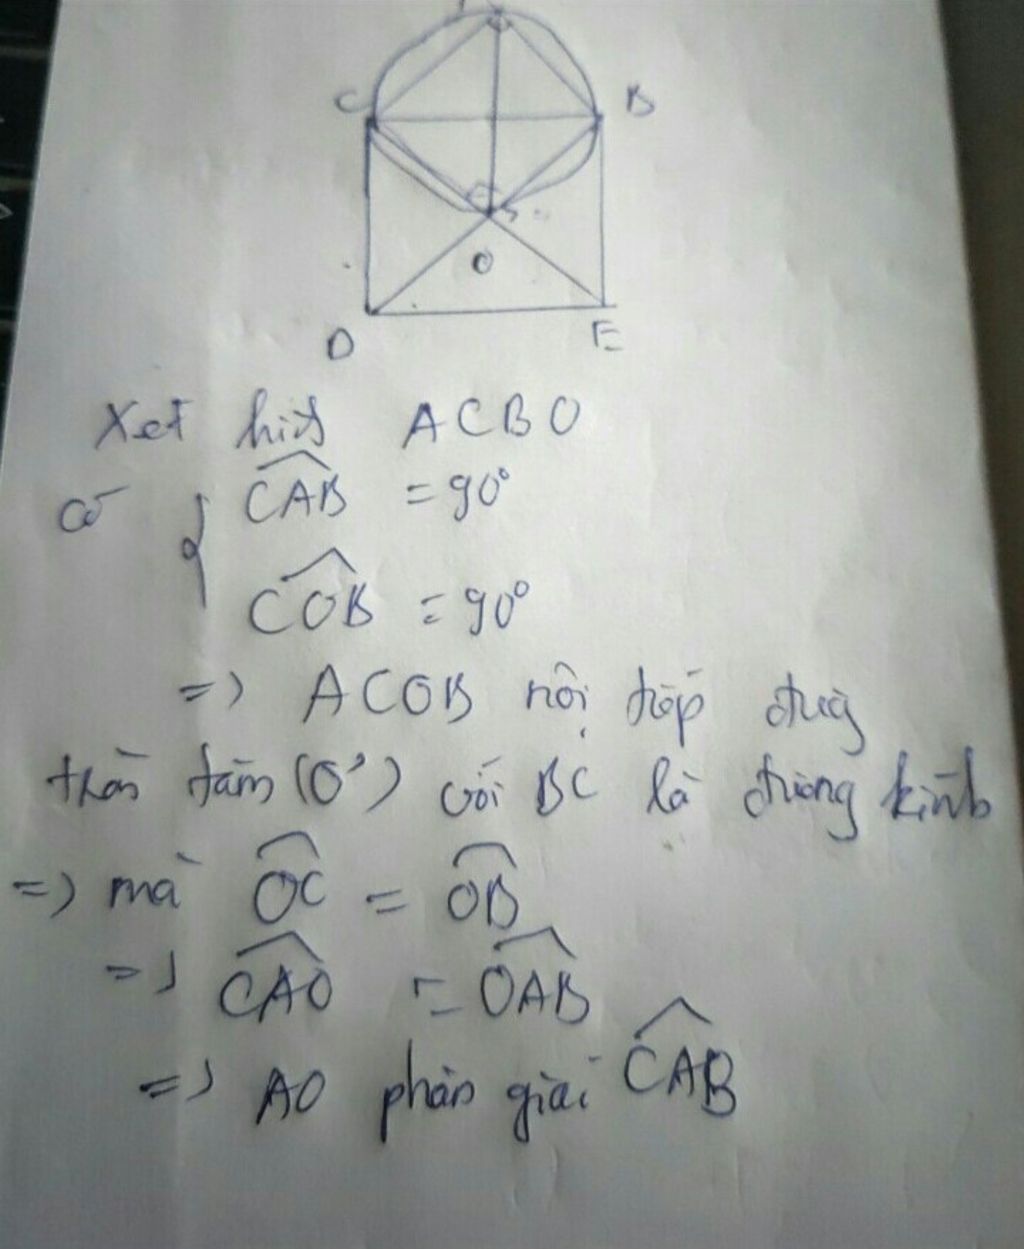 C B
O
D E
Xét hình ACBO
có { CAB = 90°
COB = 90°
=> ACOB nội tiếp đường
tròn tâm (O') với BC là đường kính
=> mà OC = OB
=> CAO = OAB
=> AO phân giác CAB